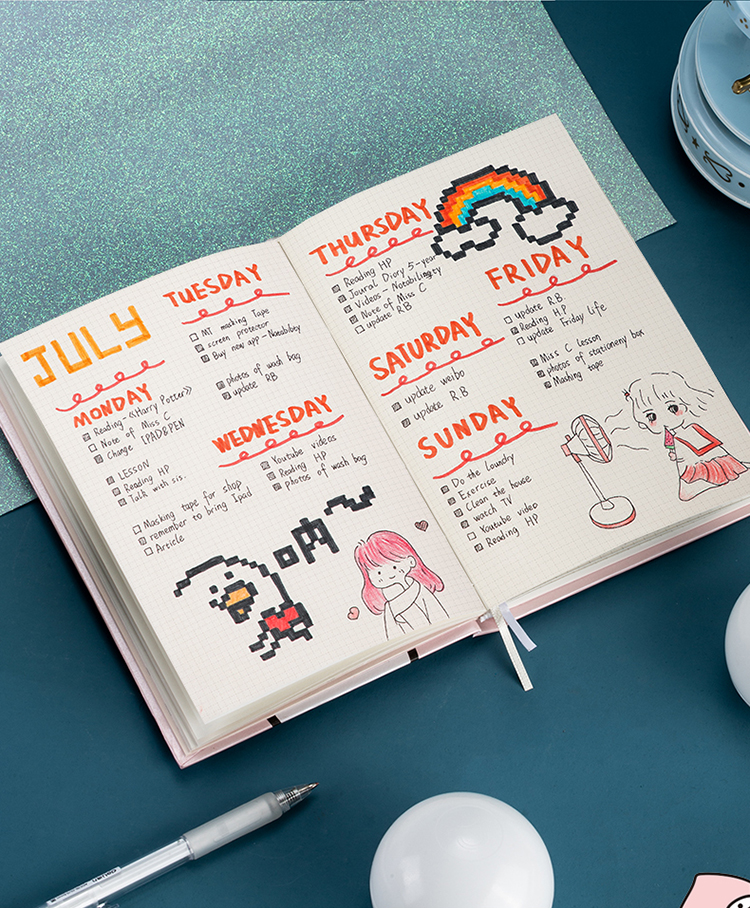 JULY
MONDAY
Reading-《Harry Potter》
Note of Miss C
Change IPAD&PEN
LESSON
Reading HP
Talk with sis.
Masking tape for shop,
remember to bring Ipad
Article
TUESDAY
MT masking Tape
screen protector
Buy new app-Notability
photos of wash bag
update RB
WEDNESDAY
Youtube videos
Reading HP
photos of wash bag
呐~
THURSDAY
Reading HP
Joural Diary 5-year
Videos-Notability
Note of Miss C
update RB
FRIDAY
update R.B.
Reading H.P
update Friday life
Miss C lesson
photos of stationeny box
Mashing tape
SATURDAY
update weibo
update R.B
SUNDAY
Do the laundry
Exercise
Clean the house
watch TV
Youtube video
Reading HP